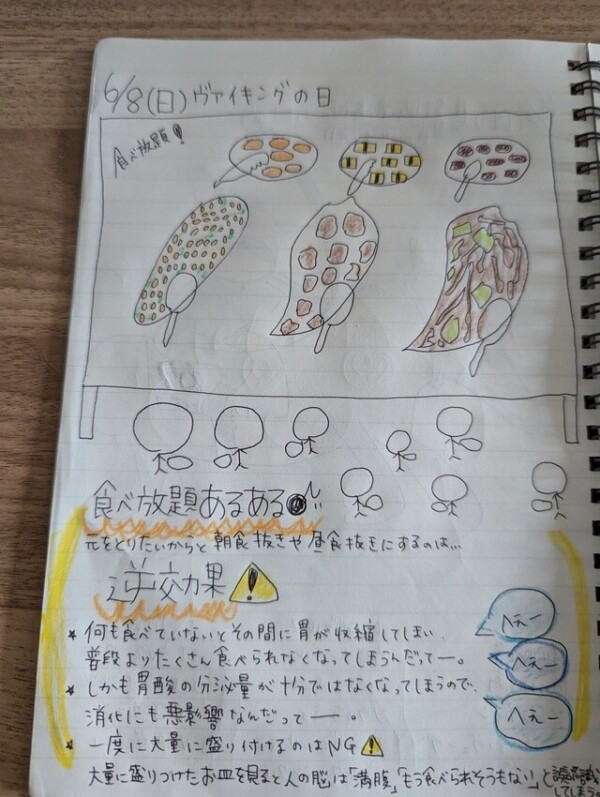 6/8(日)ヴァイキングの日
食べ放題!
食べ放題あるある
元をとりたいからと朝食抜きや昼食抜きにするのは…
逆効果
★ 何も食べていないとその間に胃が収縮してしまい
普段よりたくさん食べられなくなってしまうんだってー。
★ しかも胃酸の分泌量が十分ではなくなってしまうので、
消化にも悪影響なんだってー。
へぇー
へぇー
へぇー
★ 一度に大量に盛り付けるのはNG
大量に盛りつけたお皿を見ると人の脳は「満腹」「もう食べられそうもない」と誤認識
してしまう。